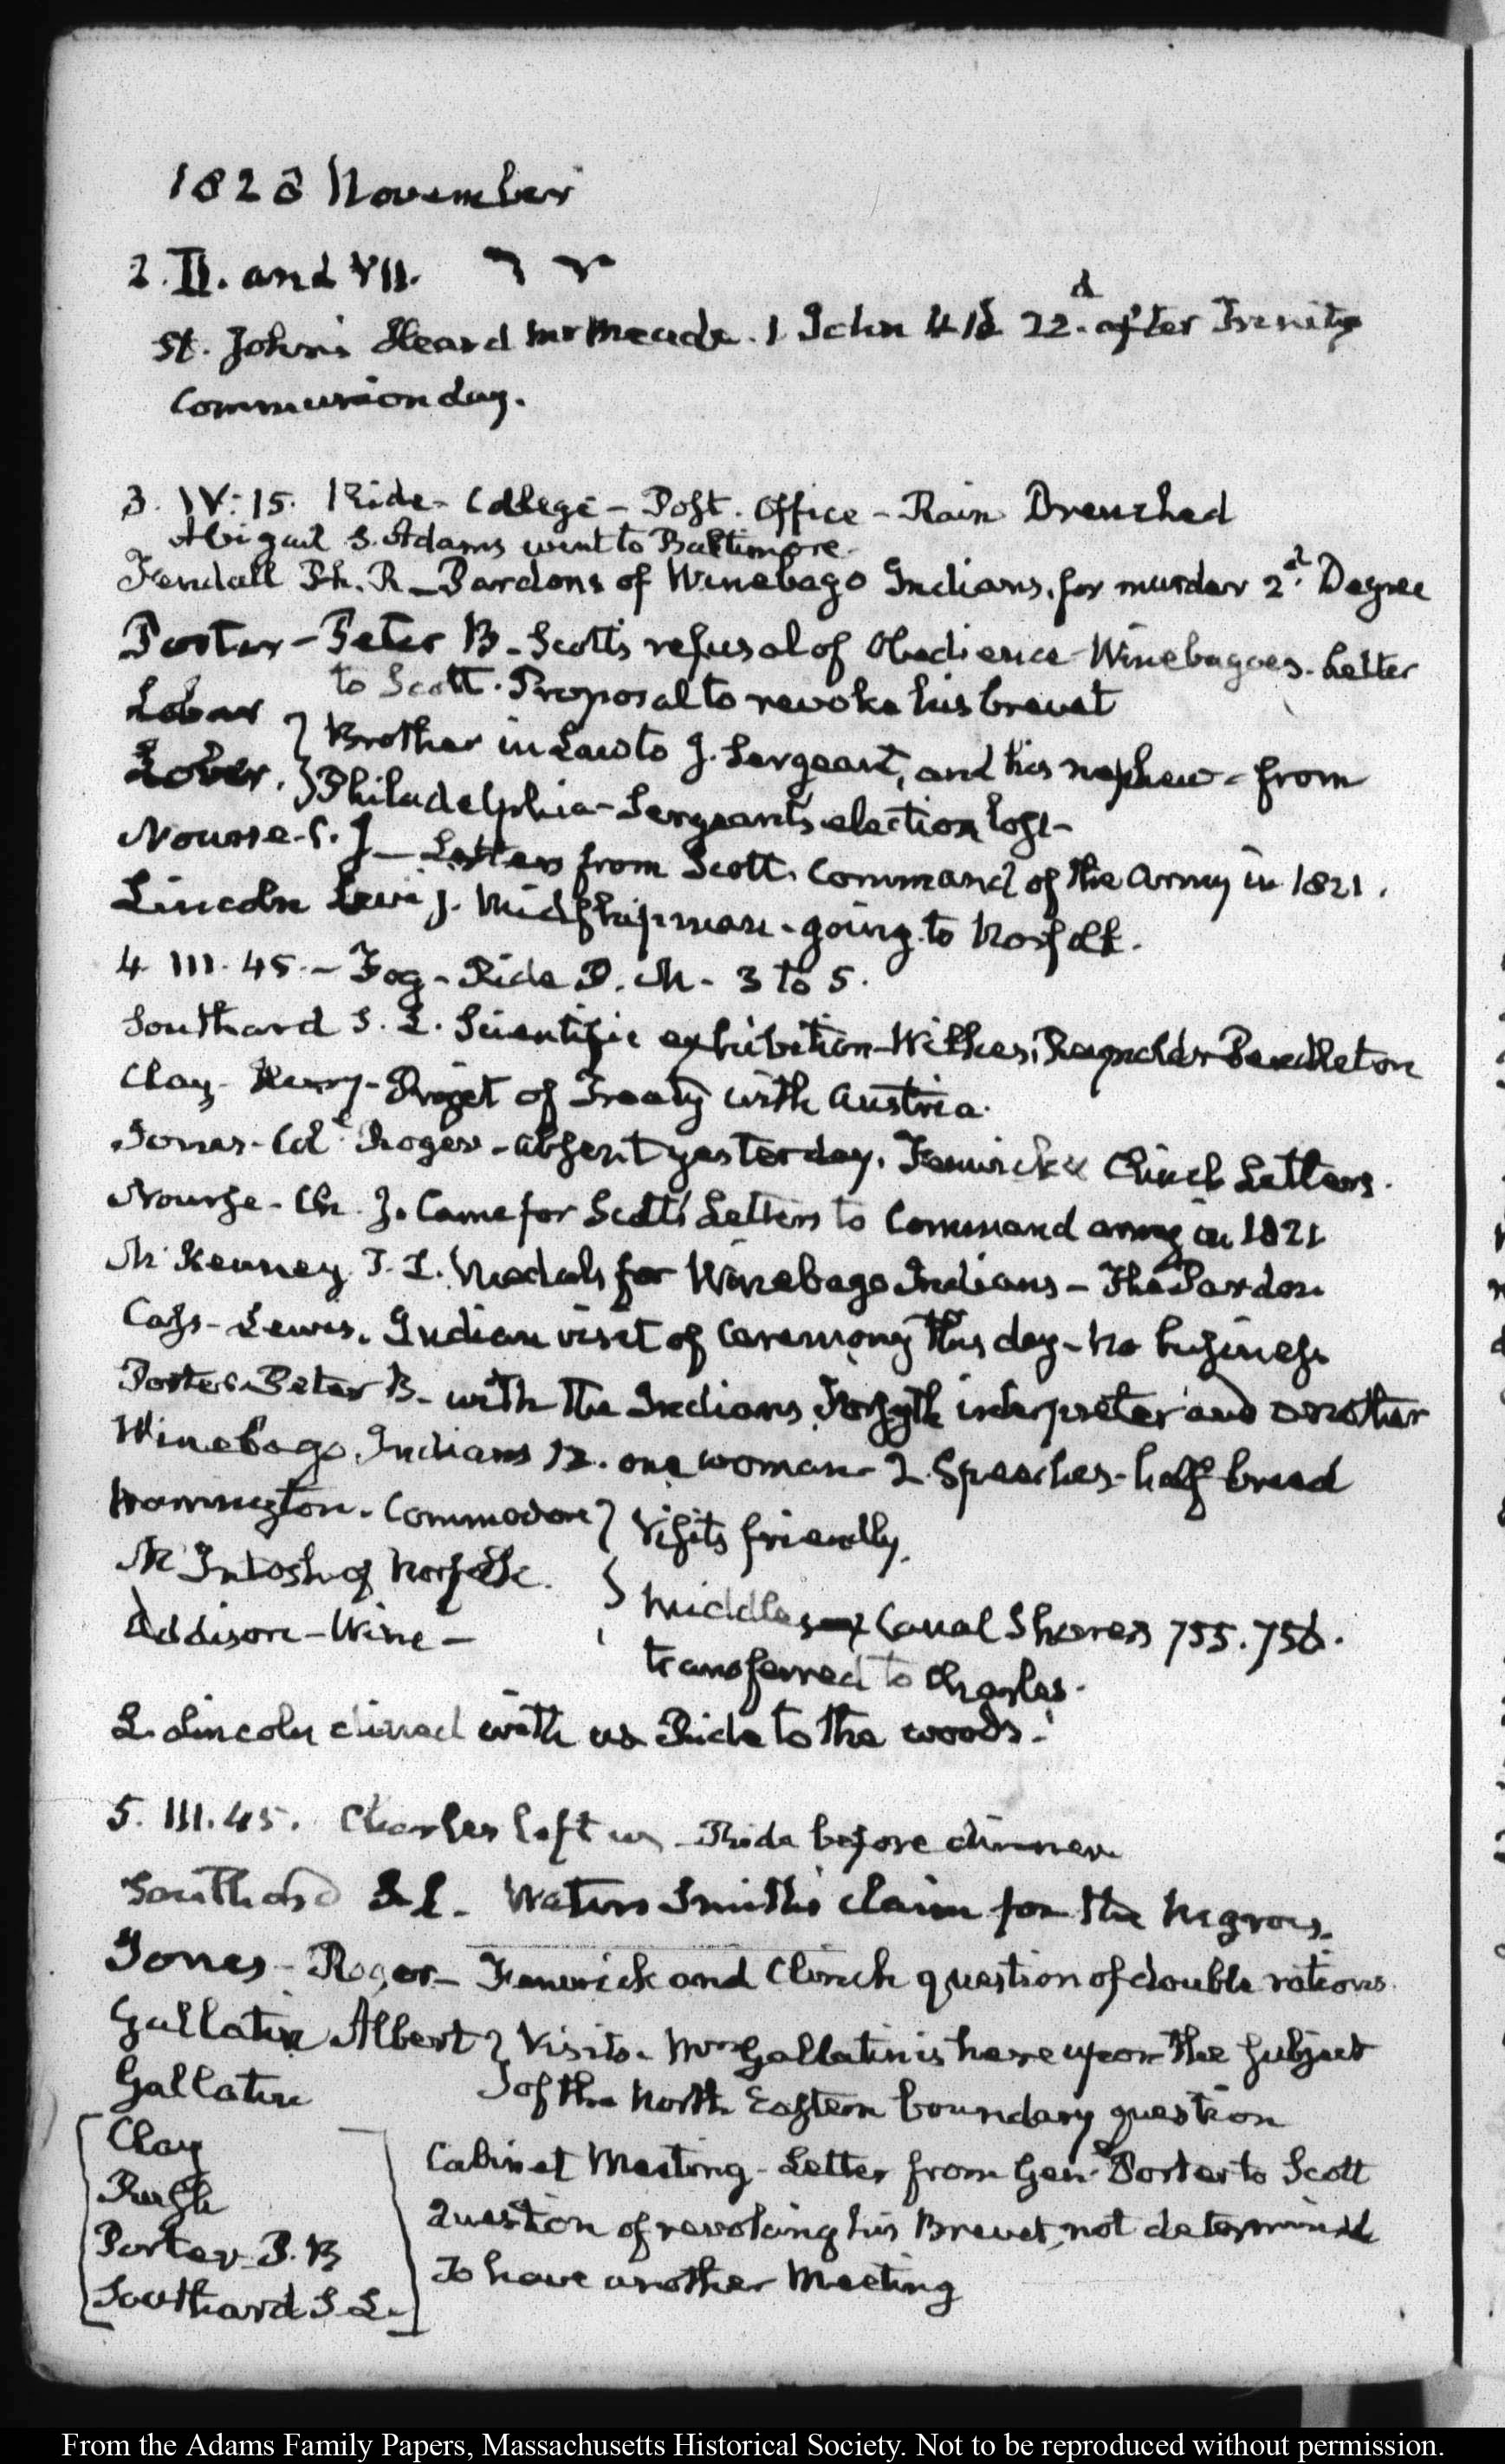 1828 November
2. II. and VII.
St. John's Heard Mr Meade. 1 John 4 18 22.d after Trinity
Communion day.
3. IV: 15. Ride - College - Post. Office - Rain Drenched
Abigail S. Adams went to Baltimore.
Fendall Ph. R - Pardons of Winebago Indians, for murder 2.d Degree
Porter - Peter B - Scott's refusal of Obedience - Winebagoes. Letter
to Scott. Proposal to revoke his brevet
Brother in Law to J. Sergeant, and his nephew - from
Philadelphia - Sergeant's election lost -
Nourse - C. J - Letters from Scott. Command of the Army in 1821.
Lincoln Levi j. Midshipman - going to Norfolk.
4 III. 45. - Fog - Ride P. M - 3 to 5.
Southard S. L. Scientific exhibition - Wilkes, Reynolds Pendleton
Clay - Henry - Projet of Treaty with Austria.
Jones - Col.l Roger - absent yesterday. Fenwick & Clinch Letters.
Nourse - Ch. J. Came for Scott's Letters to Command army in 1821
McKenney T. L. Medals for Winebago Indians - The Pardon
Cass - Lewis. Indian visit of Ceremony this day - no business
Porter Peter B - with the Indians Forsyth interpreter and another
Winebago Indians 12. one woman - 2 Speeches - half breed
Warrington. Commodore } Visits friendly.
McIntosh of Norfolk. }
Addison - Wine - Middlesex Canal Shares 755. 756.
transferred to Charles.
L. Lincoln dined with us Ride to the woods.
5. III. 45. Charles left us - Ride before dinner
Southard S. L. - Waters Smith's claim for the negroes.
Jones - Roger - Fenwick and Clinch question of double rations.
Gallatin Albert } Visits. Mr Gallatin is here upon the subject
Gallatin } of the North Eastern boundary question
Clay
Rush
Porter P. B
Southard S. L.
Cabinet Meeting - Letter from Gen.l Porter to Scott
Question of revoking his Brevet, not determined
To have another Meeting
From the Adams Family Papers, Massachusetts Historical Society. Not to be reproduced without permission.